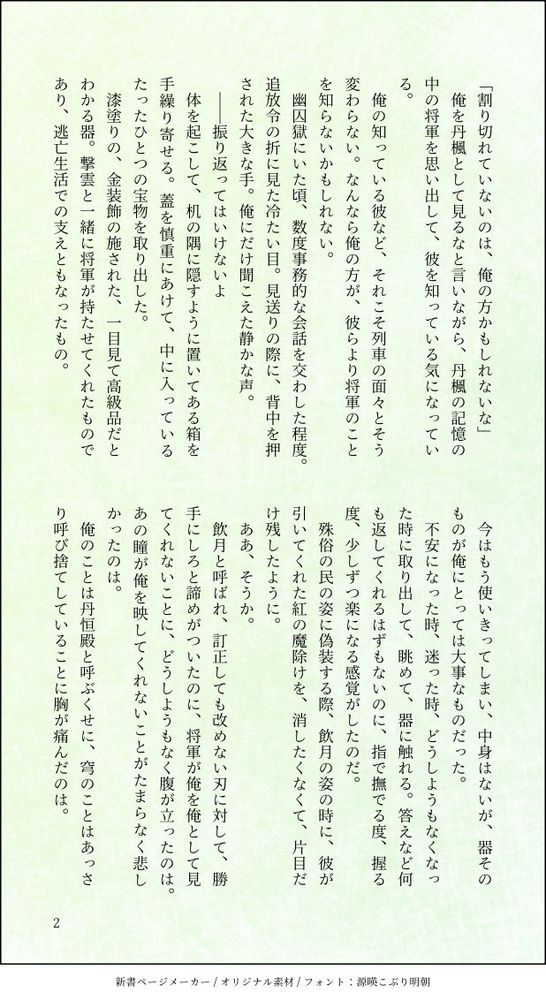 「割り切れていないのは、俺の方かもしれないな」
　俺を丹楓として見るなと言いながら、丹楓の記憶の
中の将軍を思い出して、彼を知っている気になってい
る。
　俺の知っている彼など、それこそ列車の面々とそう
変わらない。なんなら俺の方が、彼らより将軍のこと
を知らないかもしれない。
　幽囚獄にいた頃、数度事務的な会話を交わした程度。
追放令の折に見た冷たい目。見送りの際に、背中を押
された大きな手。俺にだけ聞こえた静かな声。
　――振り返ってはいけないよ
　体を起こして、机の隅に隠すように置いてある箱を
手繰り寄せる。蓋を慎重にあけて、中に入っている
たったひとつの宝物を取り出した。
　漆塗りの、金装飾の施された、一目見て高級品だと
わかる器。撃雲と一緒に将軍が持たせてくれたもので
あり、逃亡生活での支えともなったもの。
　今はもう使いきってしまい、中身はないが、器その
ものが俺にとっては大事なものだった。
　不安になった時、迷った時、どうしようもなくなっ
た時に取り出して、眺めて、器に触れる。答えなど何
も返してくれるはずもないのに、指で撫でる度、握る
度、少しずつ楽になる感覚がしたのだ。
　殊俗の民の姿に偽装する際、飲月の姿の時に、彼が
引いてくれた紅の魔除けを、消したくなくて、片目だ
け残したように。
　ああ、そうか。
　飲月と呼ばれ、訂正しても改めない刃に対して、勝
手にしろと諦めがついたのに、将軍が俺を俺として見
てくれないことに、どうしようもなく腹が立ったのは。
あの瞳が俺を映してくれないことがたまらなく悲し
かったのは。
　俺のことは丹恒殿と呼ぶくせに、穹のことはあっさ
り呼び捨てしていることに胸が痛んだのは。
2
新書ページメーカー / オリジナル素材 / フォント：源暎こぶり明朝